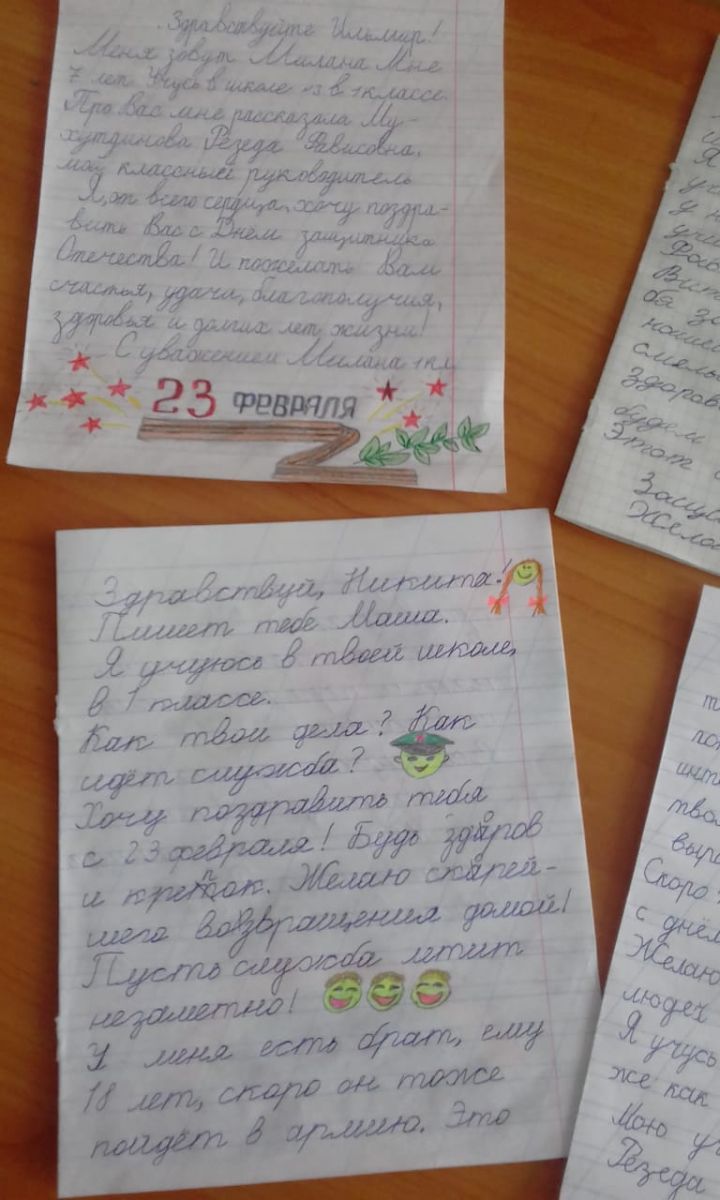 Здравствуйте Ильмир!
Меня зовут Милана Мне
7 лет Учусь в школе в 1 классе.
Про Вас мне рассказала Му-
хутдинова Резеда Рависовна,
мой классный руководитель
Я, от всего сердца, хочу поздра-
вить Вас с Днём защитника
Отечества! И пожелать Вам
счастья, удачи, благополучия,
здоровья и долгих лет жизни!
С уважением Милана 1 кл.
23 ФЕВРАЛЯ
Здравствуй, Никита!
Пишет тебе Маша.
Я учуюсь в твоей школе,
в 1 классе.
Как твои дела? Как
идёт служба?
Хочу поздравить тебя
с 23 февраля! Будь здоров
и крепок. Желаю скорей-
шего возвращения домой!
Пусть служба летит
незаметно!
У меня есть брат, ему
18 лет, скоро он тоже
пойдёт в армию. Это
будем
Этот
Скоро
с днём
Желаю
людей
Я учусь
же как
Мою
Резеда